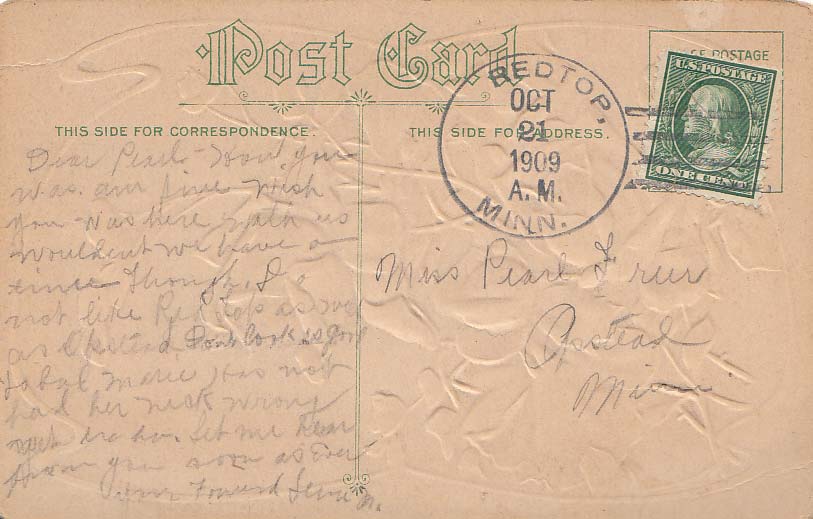 Post Card
CE POSTAGE
U.S. POSTAGE
ONE CENT
REDTOP,
OCT
21
1909
A.M.
MINN.
THIS SIDE FOR CORRESPONDENCE.
THIS SIDE FOR ADDRESS.
Dear Pearl How you
was am fine Wish
you was here with us
wouldent we have a
time though. I do
not like Red top as well
as Opstead. look is
Marie Has not
had her neck wrong
yet ha ha. Let me hear
from you soon as Ever
your Friend
Miss Pearl
Opstead
Minn.